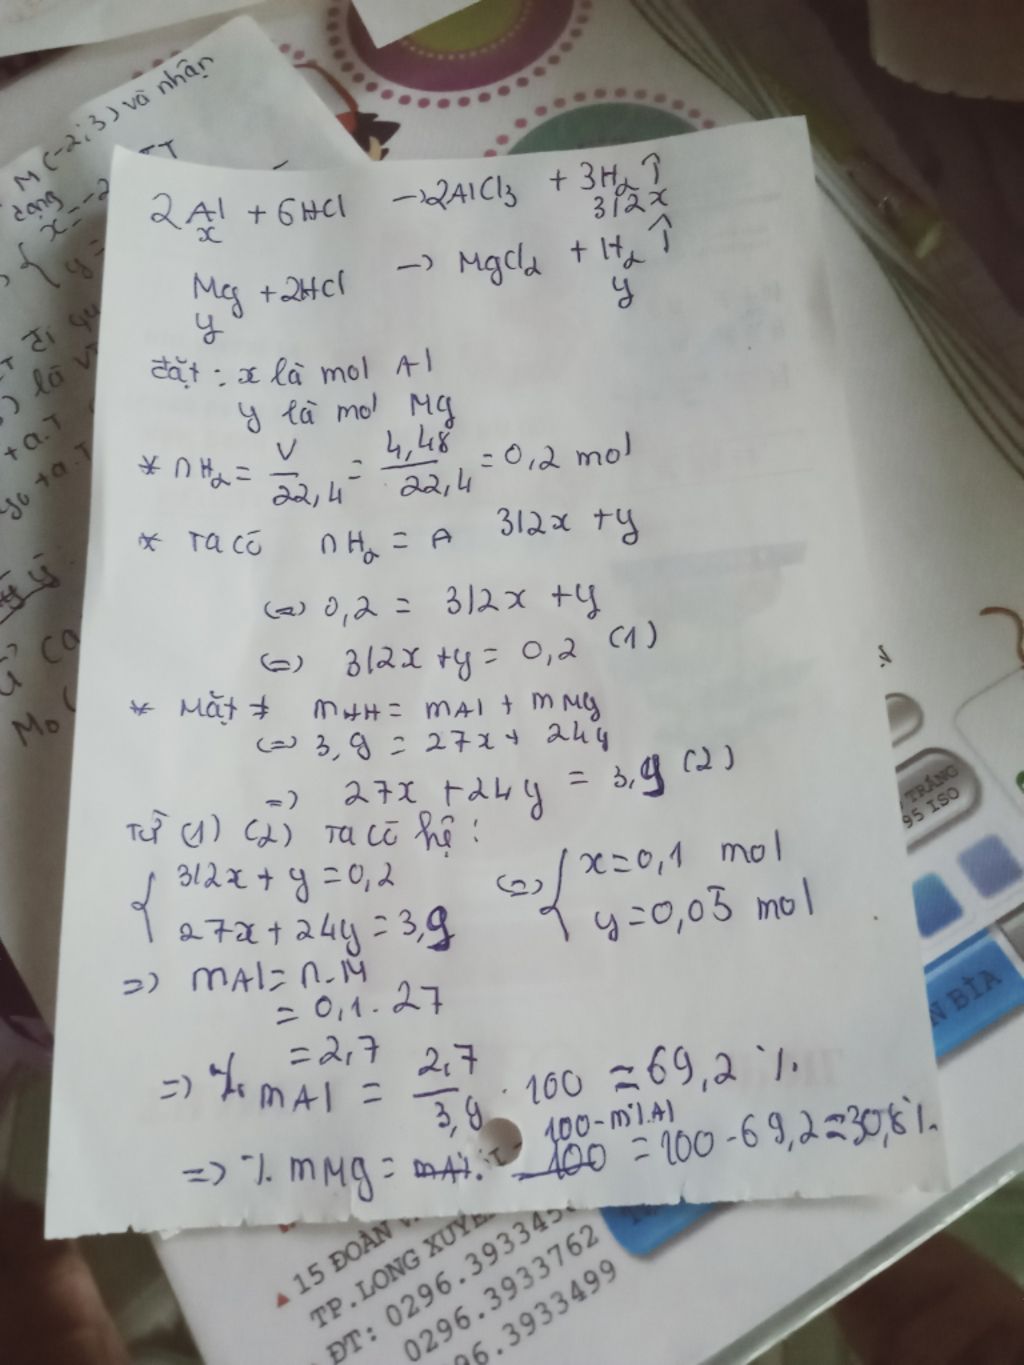 M(-2;3) và nhận
dạng
x=-2
y=
2Al + 6HCl → 2AlCl3 + 3H2 ↑
x 3/2x
Mg + 2HCl → MgCl2 + H2 ↑
y y
đặt : x là mol Al
y là mol Mg
* nH2 = V/22,4 = 4,48/22,4 = 0,2 mol
* Ta có nH2 = A 3/2x + y
(=) 0,2 = 3/2x + y
(=) 3/2x + y = 0,2 (1)
* Mặt ≠ mHH = mAl + mMg
(=) 3,9 = 27x + 24y
=) 27x + 24y = 3,9 (2)
Từ (1) (2) Ta có hệ :
{ 3/2x + y = 0,2 (=) { x = 0,1 mol
27x + 24y = 3,9 y = 0,05 mol
=) mAl = n.M
= 0,1 . 27
= 2,7
=) % mAl = 2,7/3,9 . 100 ≈ 69,2 %.
100 - m%Al
=) % mMg = mA%. 100 = 100 - 69,2 ≈ 30,8 %.
TRẮNG
95 ISO
N BÌA
15 ĐOÀN
TP.LONG XUYÊ
ĐT: 0296.393345
0296.3933762
96.3933499